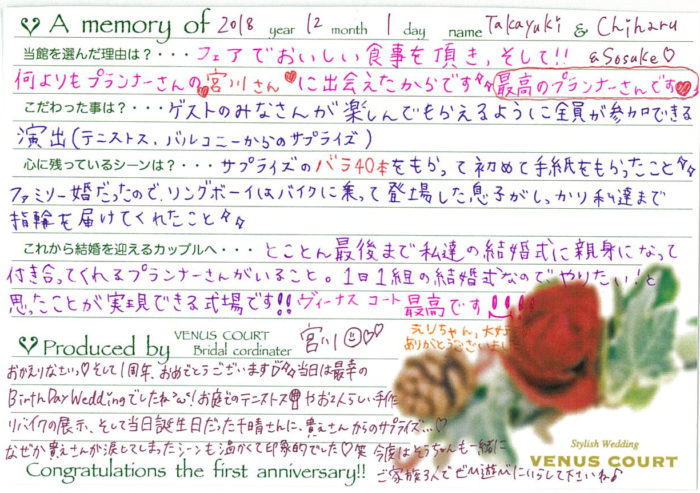 A memory of 2018 year 12 month 1 day name Takayuki & Chiharu
& Sosuke♡
当館を選んだ理由は？・・・フェアでおいしい食事を頂き、そして!!
何よりもプランナーさんの宮川さん♥に出会えたからです 最高のプランナーさんです♥
こだわった事は？・・・ゲストのみなさんが楽しんでもらえるように全員が参加できる
演出(テニストス、バルコニーからのサプライズ)
心に残っているシーンは？・・・サプライズのバラ40本をもらって初めて手紙をもらったこと
ファミリー婚だったので、リングボーイはバイクに乗って登場した息子がしっかり私達まで
指輪を届けてくれたこと
これから結婚を迎えるカップルへ・・・とことん最後まで私達の結婚式に親身になって
付き合ってくれるプランナーさんがいること。1日1組の結婚式なのでやりたい！と
思ったことが実現できる式場です!!ヴィーナスコート最高です!!!!
えりちゃん、大好き
ありがとうございました
Produced by VENUS COURT Bridal cordinater 宮川
おかえりなさい♡そして1周年、おめでとうございます 当日は最幸の
BirthDay Weddingでしたね！お庭でのテニストスやお2人らしい手作り
バイクの展示、そして当日誕生日だった千晴さんに、貴さんからのサプライズ…♡
なぜか貴さんが涙してしまったシーンも温かくて印象的でした♡笑 今度はそうちゃんも一緒に
ご家族3人でぜひ遊びにいらして下さいね♪
Congratulations the first anniversary!!
Stylish Wedding
VENUS COURT